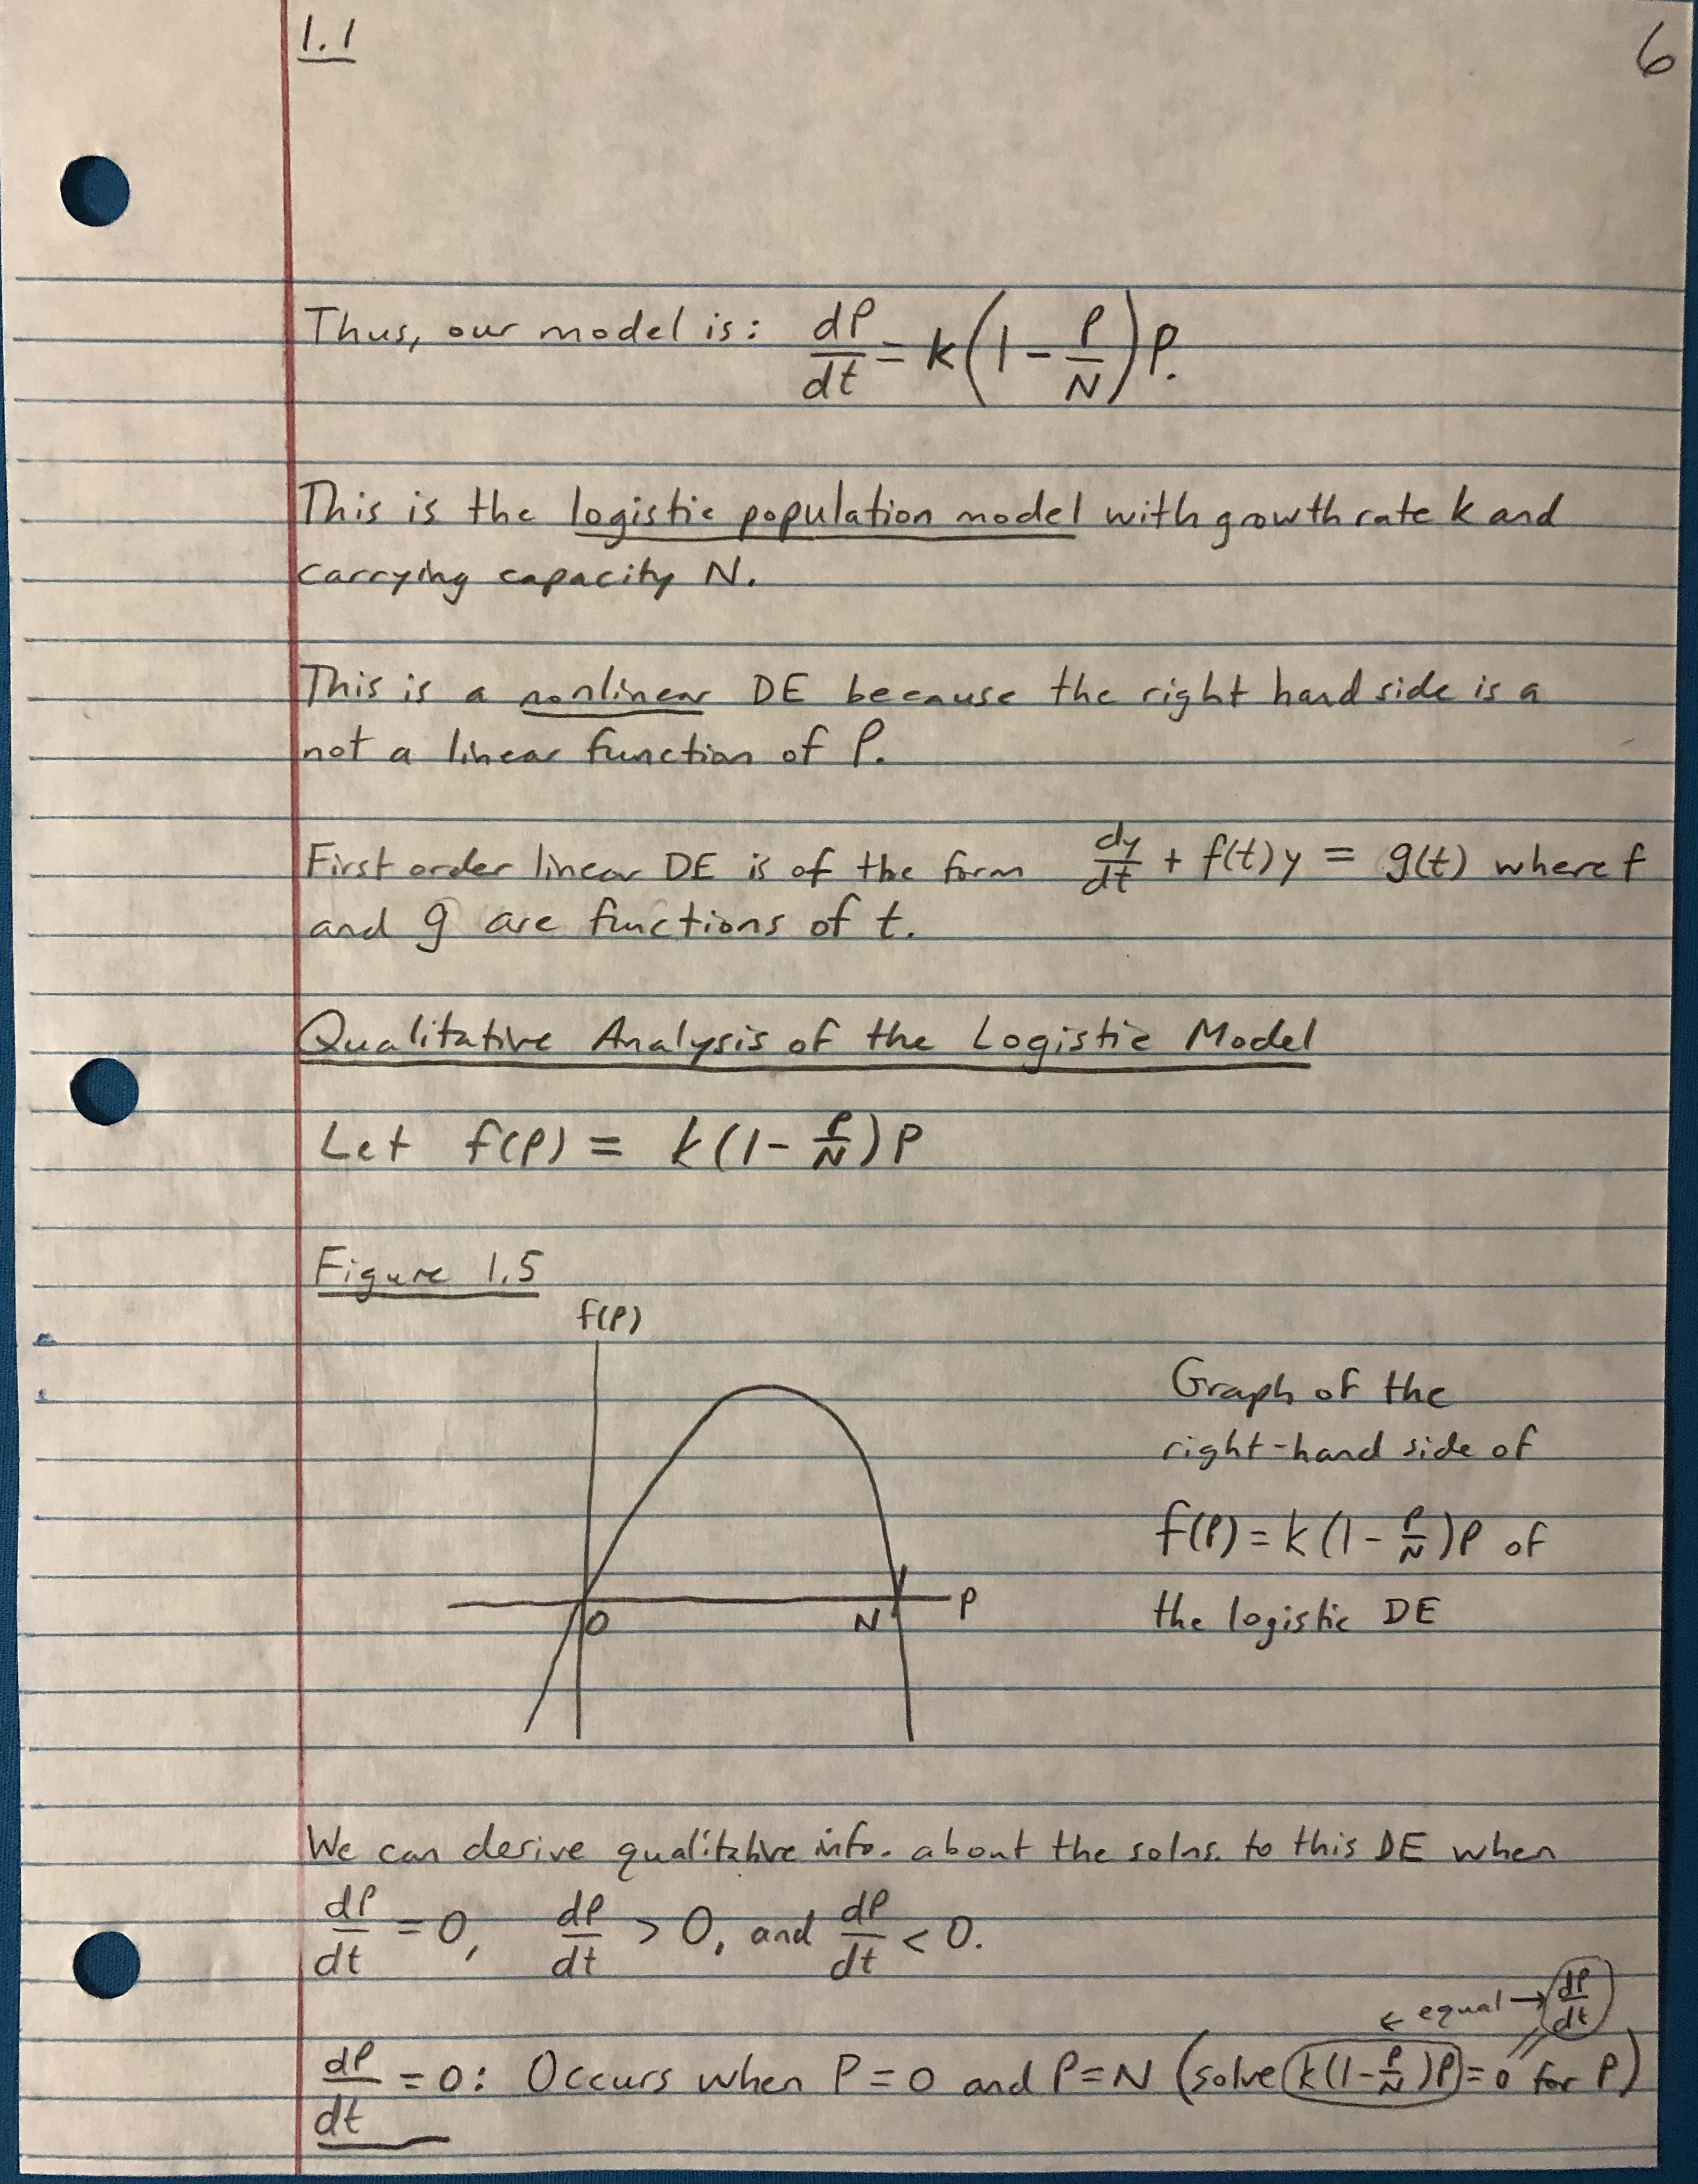 1.1 6
Thus, our model is: dP/dt = k(1 - P/N)P.
This is the logistic population model with growth rate k and
carrying capacity N.
This is a nonlinear DE because the right hand side is a
not a linear function of P.
First order linear DE is of the form dy/dt + f(t)y = g(t) where f
and g are functions of t.
Qualitative Analysis of the Logistic Model
Let f(P) = k(1 - P/N)P
Figure 1.5
f(P)
Graph of the
right-hand side of
f(P) = k(1 - P/N)P of
the logistic DE
0 N P
We can desive qualitative info. about the solns. to this DE when
dP/dt = 0, dP/dt > 0, and dP/dt < 0.
← equal → dP/dt
dP/dt = 0: Occurs when P = 0 and P = N (solve k(1 - P/N)P = 0 for P)